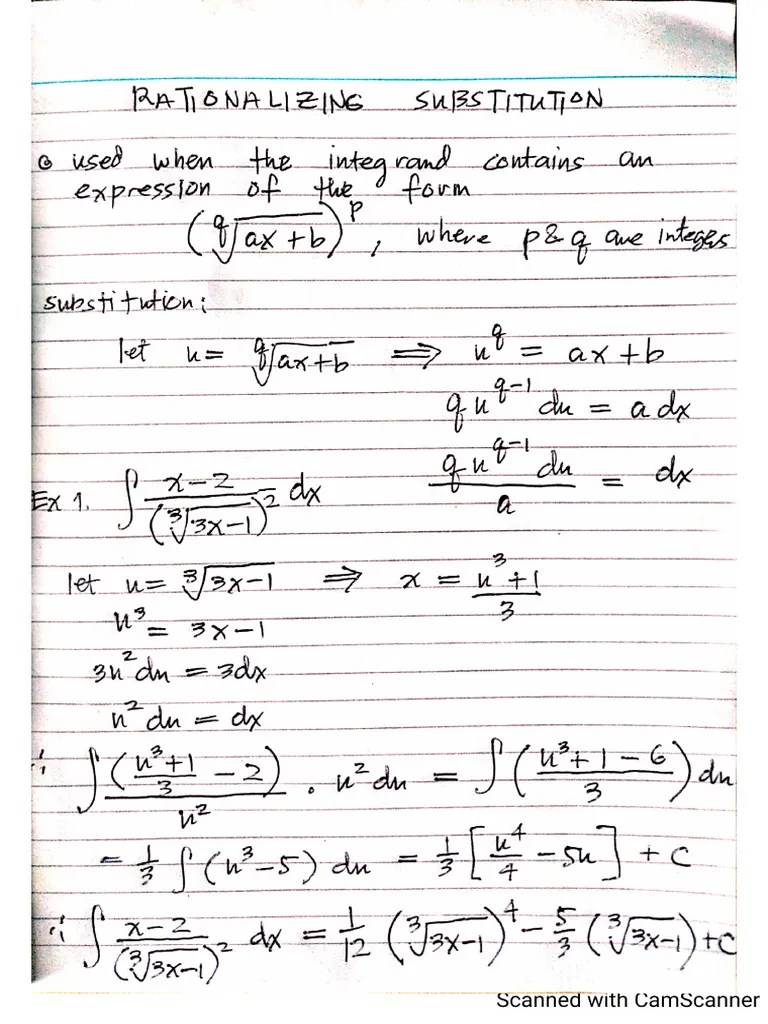 RATIONALIZING SUBSTITUTION
used when the integrand contains an
expression of the form
(q√(ax+b))^p, where p & q are integes
substitution:
let u = q√(ax+b) ⟹ u^q = ax+b
q u^(q-1) du = a dx
(q u^(q-1) du)/a = dx
Ex 1. ∫ (x-2)/(³√(3x-1))² dx
let u = ³√(3x-1) ⟹ x = (u³+1)/3
u³ = 3x-1
3u² du = 3dx
u² du = dx
∴ ∫ ((u³+1)/3 - 2)/u² · u² du = ∫ ((u³+1-6)/3) du
= 1/3 ∫ (u³-5) du = 1/3 [u⁴/4 - 5u] + C
∴ ∫ (x-2)/(³√(3x-1))² dx = 1/12 (³√(3x-1))⁴ - 5/3 (³√(3x-1)) + C
Scanned with CamScanner